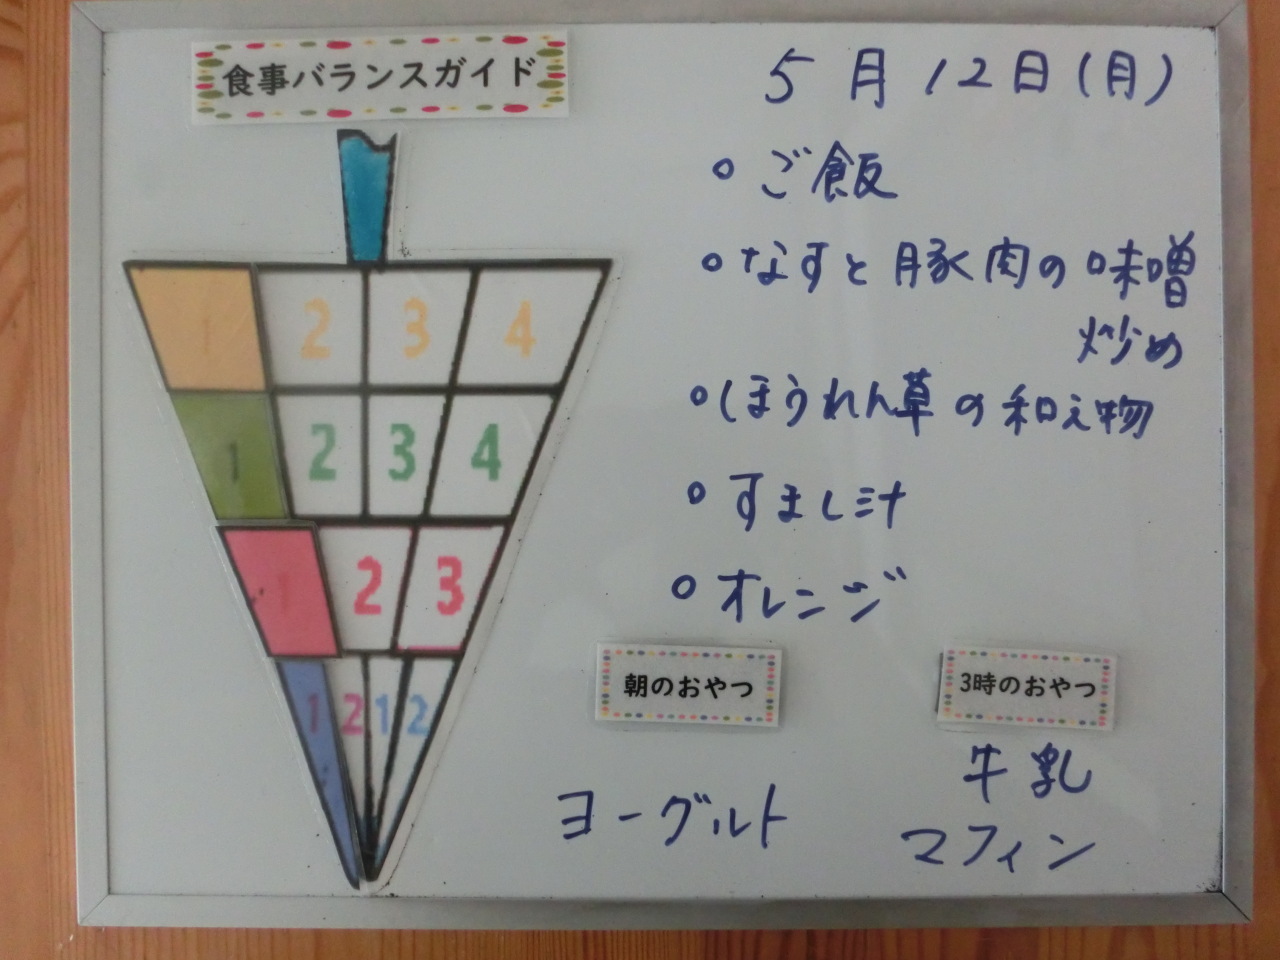 食事バランスガイド
5月12日(月)
ご飯
なすと豚肉の味噌
炒め
ほうれん草の和え物
すまし汁
オレンジ
1 2 3 4
1 2 3 4
1 2 3
1 2 1 2
朝のおやつ
ヨーグルト
3時のおやつ
牛乳
マフィン